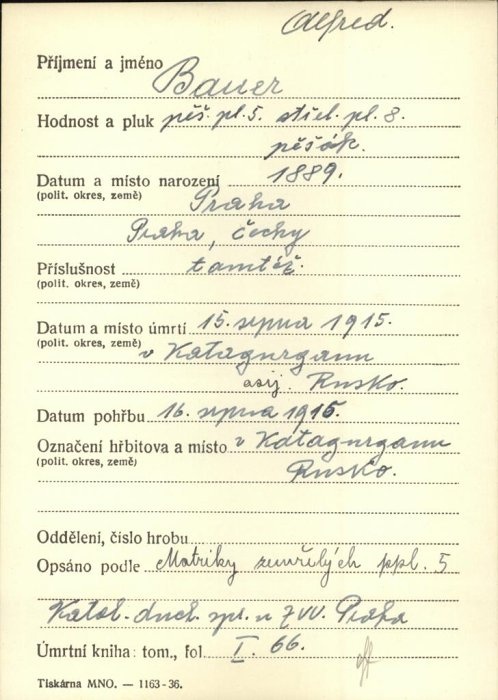 Alfred.
Příjmení a jméno Bauer
Hodnost a pluk pěš. pl. 5. střel. pl. 8.
pěšák.
Datum a místo narození 1889.
(polit. okres, země) Praha
Praha, Čechy
Příslušnost tamtéž.
(polit. okres, země)
Datum a místo úmrtí 15. srpna 1915.
(polit. okres, země) v Katagurganu
asij. Rusko.
Datum pohřbu 16. srpna 1915.
Označení hřbitova a místo v Katagurganu
(polit. okres, země) Rusko.
Oddělení, číslo hrobu
Opsáno podle Matriky zemřelých ppl. 5
Katol. duch. spr. u ZVV. Praha
Úmrtní kniha: tom., fol. I. 66.
Tiskárna MNO. — 1163-36.